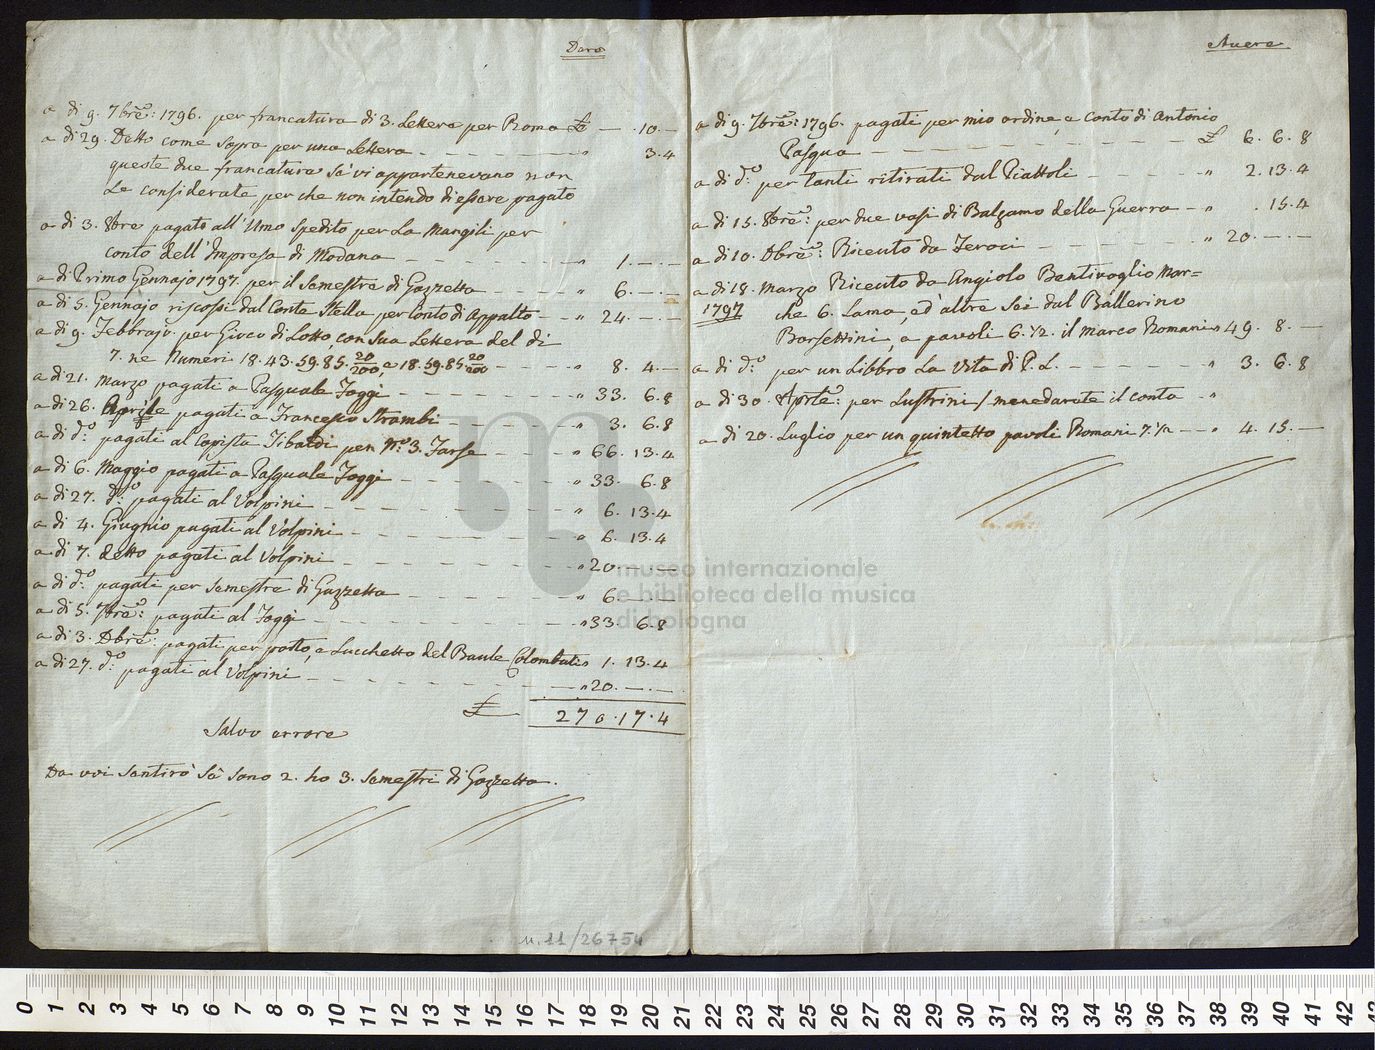 Dare
a di 9. 7bre: 1796. per francatura di 3. Lettere per Roma £ — . 10. —
a di 29. Detto come sopra per una Lettera - - - - " 3. 4
queste due francature se vi appartenevano non
Le considerate, per che non intendo di essere pagato
a di 3. 8bre pagato all'Uomo spedito per La Mangili per
conto dell'Impresa di Modana - - - - " 1. — . —
a di Primo Gennajo 1797. per il Semestre di Gazzetta - - - " 6. — . —
a di 5. Gennajo riscossi dal Conte Stella per Conto di Appalto - - " 24. — . —
a di 9. Febbrajo. per Gioco di Lotto con Sua Lettera del di
7. ne Numeri 18. 43. 59. 85. 20/200, e 18. 59. 85. 20/200 - - - " 8. 4. —
a di 21. Marzo pagati a Pasquale Foggi - - - - " 33. 6. 8
a di 26. Aprile pagati a Francesco Strambi - - - " 3. 6. 8
a di do: pagati al Copista Tibaldi per No: 3. Farse - - - " 66. 13. 4
a di 6. Maggio pagati a Pasquale Foggi - - - " 33. 6. 8
a di 27. do: pagati al Volpini - - - - " 6. 13. 4
a di 4. Giugnio pagati al Volpini - - - - " 6. 13. 4
a di 7. detto pagati al Volpini - - - - " 20. — . —
a di do: pagati per semestre di Gazzetta - - - - " 6. — . —
a di 5. 7bre: pagati al Foggi - - - - " 33. 6. 8
a di 3. Dbre: pagati per porto, e Lucchetto del Baule Colombati " 1. 13. 4
a di 27. do: pagati al Volpini - - - - " 20. — . —
£ — 270. 17. 4
Salvo errore
Da voi sentirò Se sono 2. ho 3. Semestri di Gazzetta.
n. 11/26754
Avere
a di 9. 7bre: 1796. pagati per mio ordine, a conto di Antonio
Pasqua - - - - £ 6. 6. 8
a di do: per tanti ritirati dal Piattoli - - - - " 2. 13. 4
a di 15. 8bre: per due vasi di Balzamo della Guerra - - " . 15. 4
a di 10. Dbre: Riceuto da Feroci - - - - " 20. — . —
a di 18. Marzo Riceuto da Angiolo Bentivoglio Mar=
1797 che 6. Lama, ed' altre Sei dal Ballerino
Borsettini, a pavoli 6. 1/2. il marco Romani " 49. 8. —
a di do: per un Libbro La Vita di P. L. - - - - " 3. 6. 8
a di 30. Aprle: per Lustrini / menedarete il conto - "
a di 20. Luglio per un quintetto pavoli Romani 7. 1/2 - - " 4. 15. —
museo internazionale
e biblioteca della musica
di bologna
0 1 2 3 4 5 6 7 8 9 10 11 12 13 14 15 16 17 18 19 20 21 22 23 24 25 26 27 28 29 30 31 32 33 34 35 36 37 38 39 40 41 42